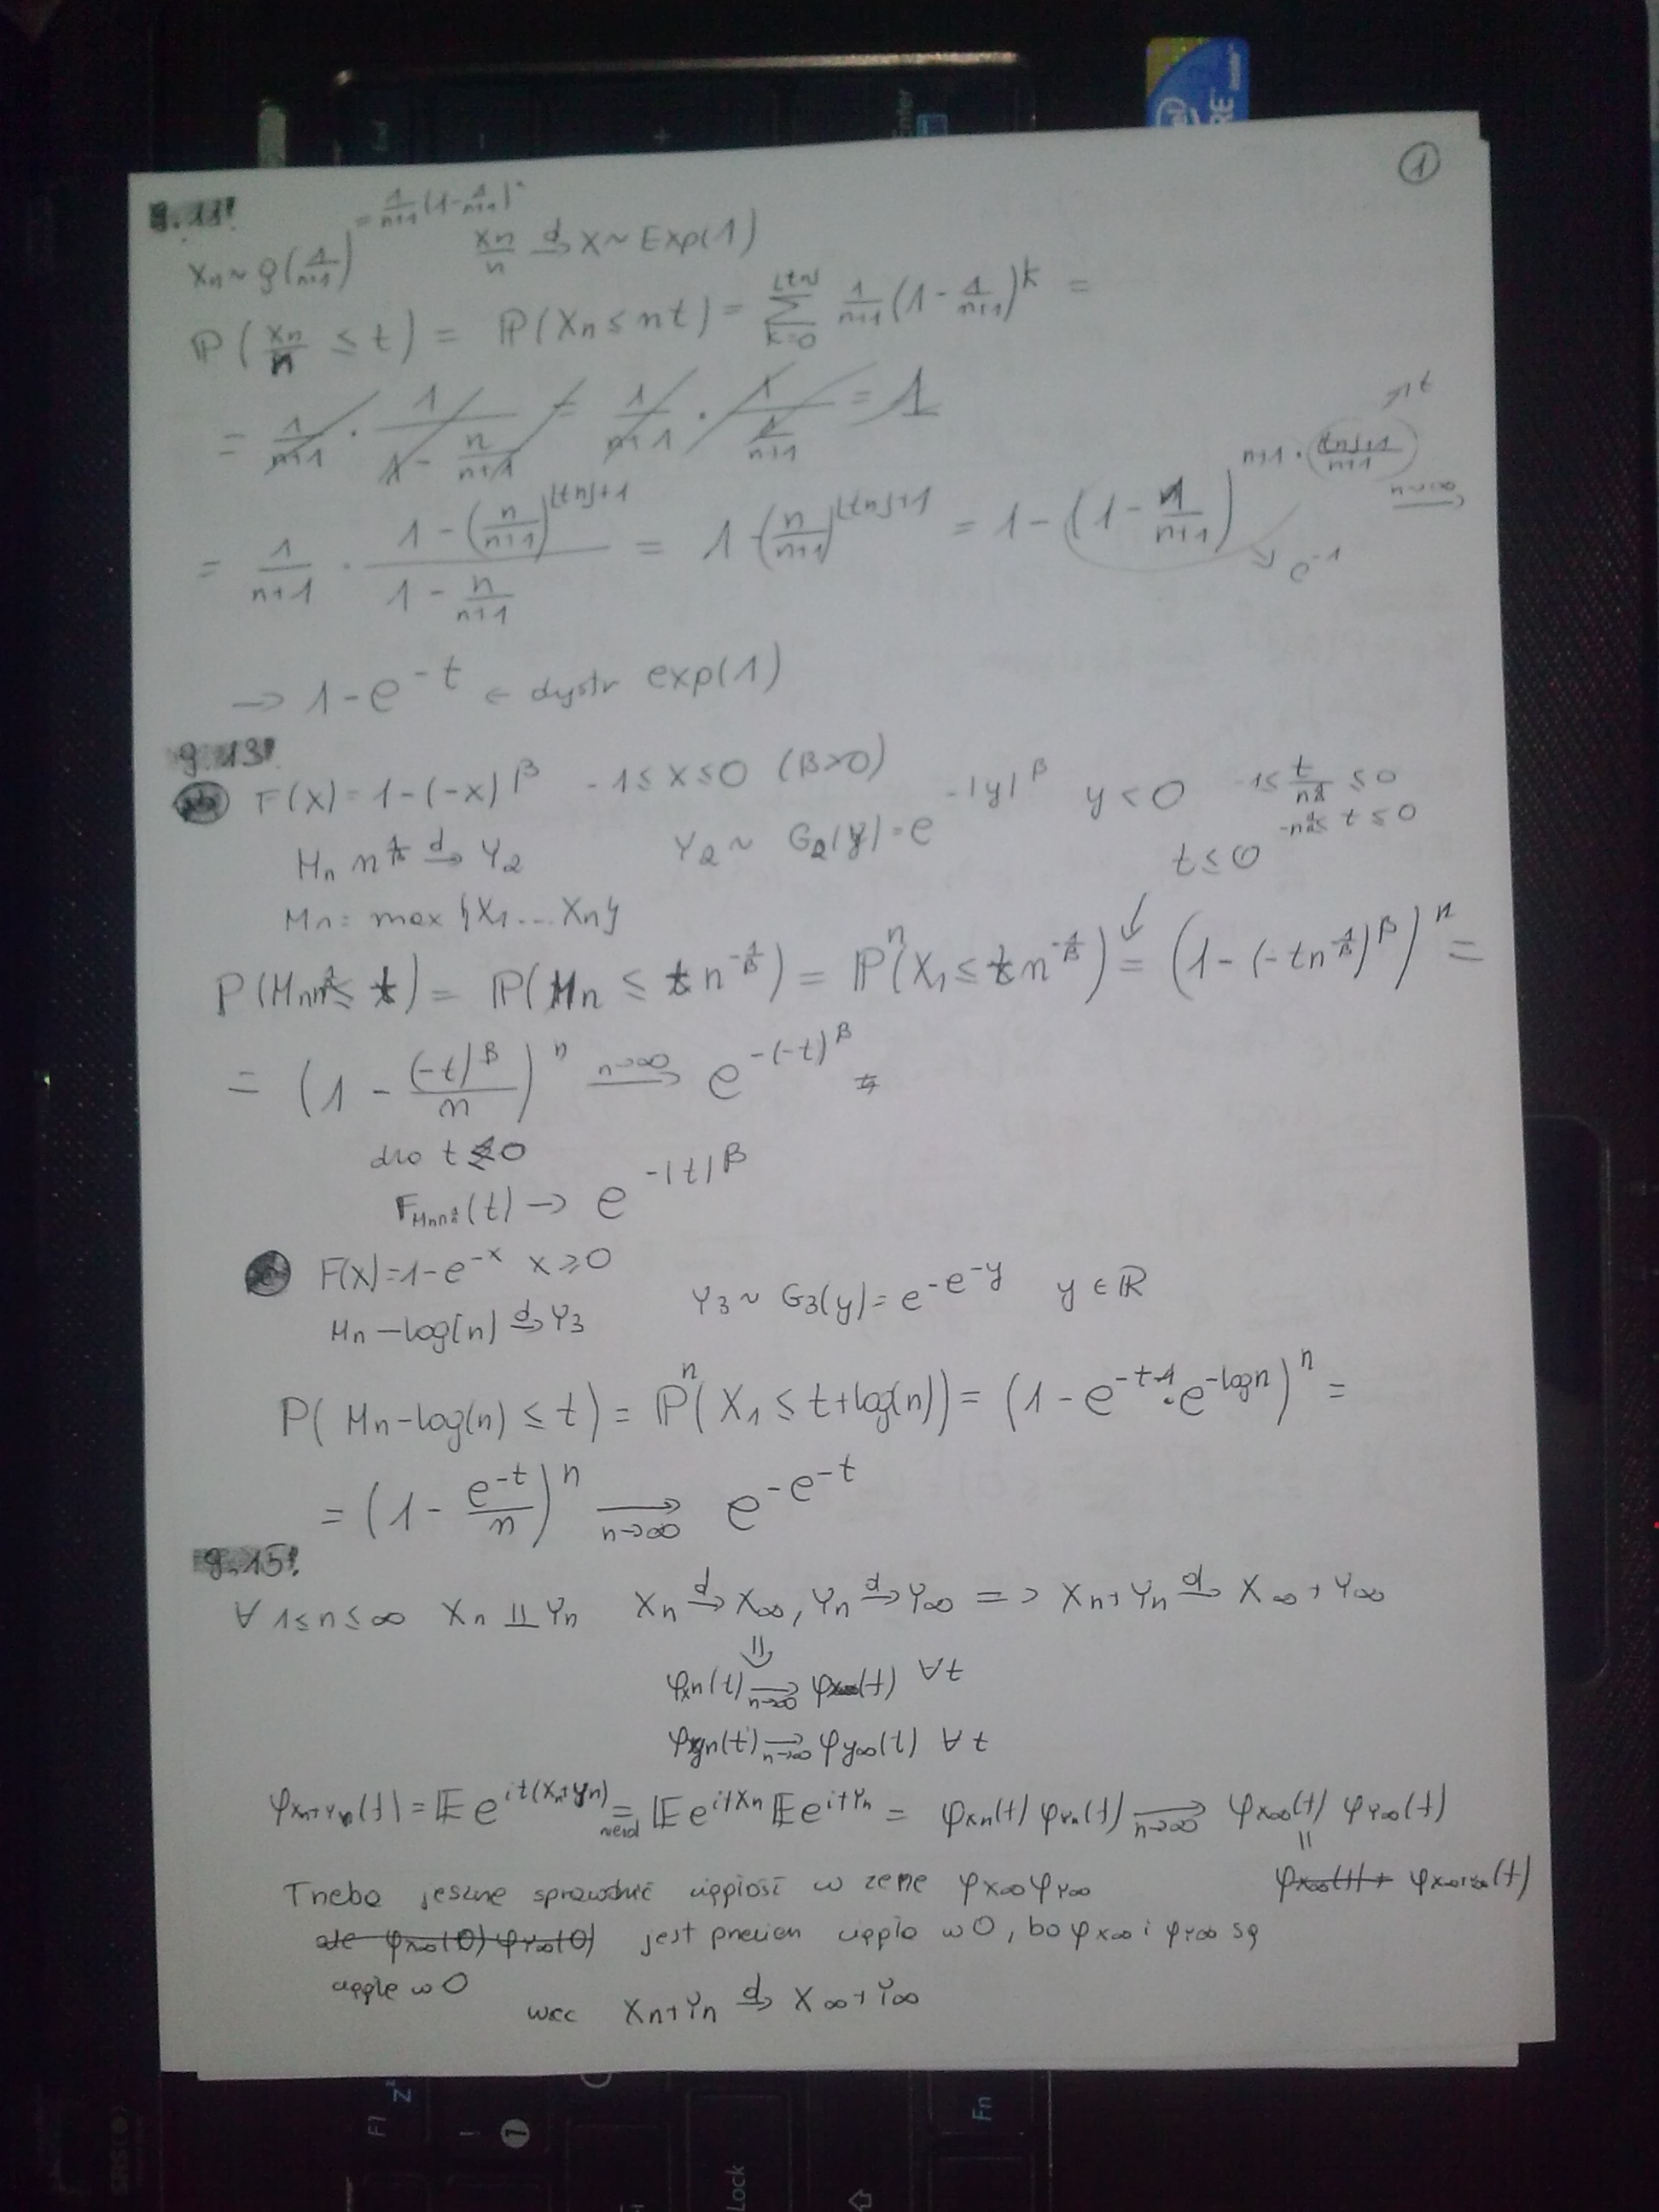 ①
9.11!
= 1/(n+1) (1 - 1/(n+1))
Xn ~ g(1/(n+1))   Xn/n →d X ~ Exp(1)
P(Xn/n ≤ t) = P(Xn ≤ nt) = Σ_{k=0}^{⌊tn⌋} 1/(n+1) (1 - 1/(n+1))^k =
= 1/(n+1) · 1/(1 - n/(n+1)) = 1/(n+1) · 1/(1/(n+1)) = 1
= 1/(n+1) · (1 - (n/(n+1))^{⌊tn⌋+1})/(1 - n/(n+1)) = 1 - (n/(n+1))^{⌊tn⌋+1} = 1 - (1 - 1/(n+1))^{n+1 · (⌊tn⌋+1)/(n+1)} →_{n→∞}
↗ t
↘ e^{-1}
→ 1 - e^{-t} ← dystr exp(1)
9.13!
F(x) = 1-(-x)^β   -1 ≤ x ≤ 0 (β>0)
Mn n^{1/β} →d Y2   Y2 ~ G2(y) = e^{-|y|^β}   y < 0
-1 ≤ t/n^{1/β} ≤ 0
-n^{1/β} ≤ t ≤ 0
t ≤ 0
Mn = max {X1 ... Xn}
P(Mn n^{1/β} ≤ t) = P(Mn ≤ t n^{-1/β}) = P^n(X1 ≤ t n^{-1/β}) = (1 - (-t n^{-1/β})^β)^n =
= (1 - (-t)^β/n)^n →_{n→∞} e^{-(-t)^β}
dla t ≤ 0
F_{Mn n^{1/β}}(t) → e^{-|t|^β}
F(x) = 1-e^{-x}   x ≥ 0
Mn - log(n) →d Y3   Y3 ~ G3(y) = e^{-e^{-y}}   y ∈ ℝ
P(Mn - log(n) ≤ t) = P^n(X1 ≤ t + log(n)) = (1 - e^{-t} · e^{-log n})^n =
= (1 - e^{-t}/n)^n →_{n→∞} e^{-e^{-t}}
9.15!
∀ 1≤n≤∞   Xn ⫫ Yn   Xn →d X∞, Yn →d Y∞ => Xn+Yn →d X∞+Y∞
⇓
φxn(t) →_{n→∞} φx∞(t) ∀t
φyn(t) →_{n→∞} φy∞(t) ∀t
φ_{Xn+Yn}(t) = E e^{it(Xn+Yn)} =_{niezal} E e^{itXn} E e^{itYn} = φxn(t) φYn(t) →_{n→∞} φx∞(t) φY∞(t)
=
φx∞(t)+ φx∞+Y∞(t)
Trzeba jeszcze sprawdzić ciągłość w zerze φx∞φY∞
ale φx∞(0) φY∞(0) jest przecież ciągła w 0, bo φx∞ i φY∞ są
ciągłe w 0
więc Xn+Yn →d X∞+Y∞
Enter
RE
F1
Z
!
1
Lock
Fn
SRS